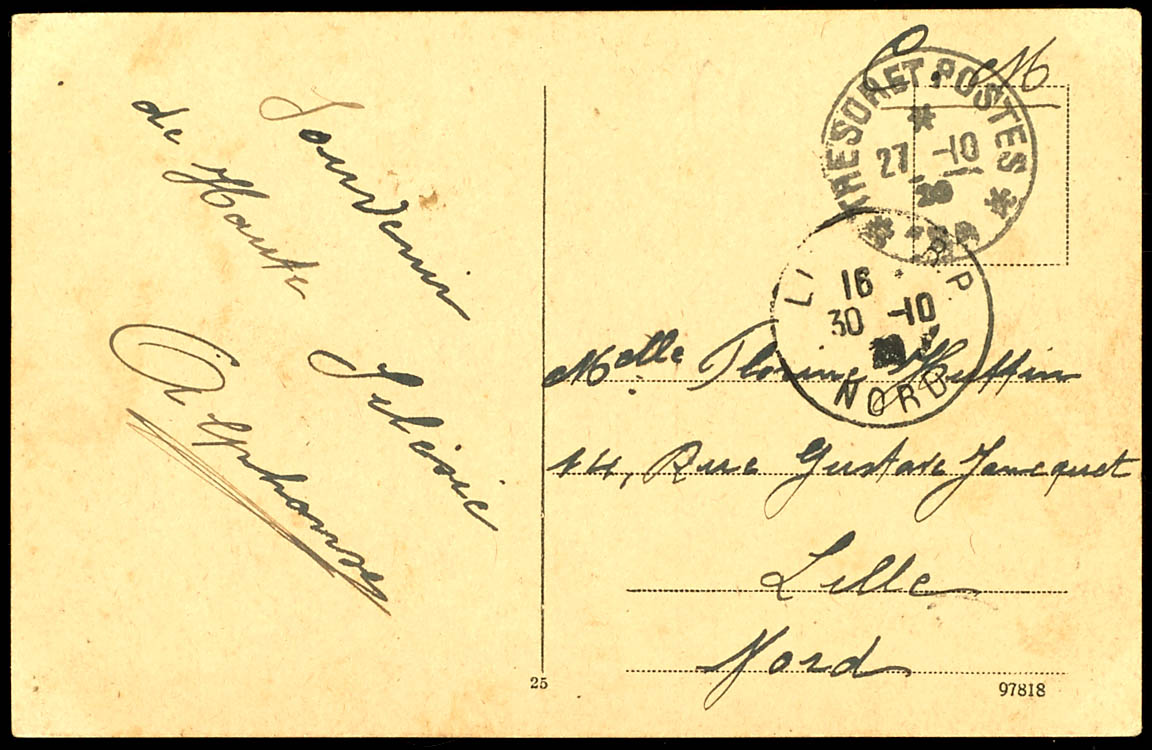 Souvenir
de Haute Silésie
Alphonse
F. M
TRESOR ET POSTES
27 -10
20
LI R.P.
16
30 -10
NORD
Melle Florine
14, Rue Gustave
Lille
Nord
25
97818